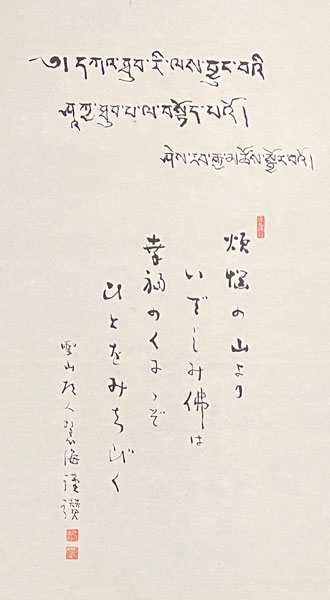 ༄། དཀའ་ཐུབ་རི་ལས་བྱུང་བའི
ཤཱཀྱ་ཐུབ་པ་ལ་བསྟོད་པའོ།
ཤེས་རབ་རྒྱ་མཚོས་སྦྱོར་བའོ།
煩悩の山より
いでしみ佛は
幸福のくにへぞ
ひとをみちびく
雪山 慧海謹讃